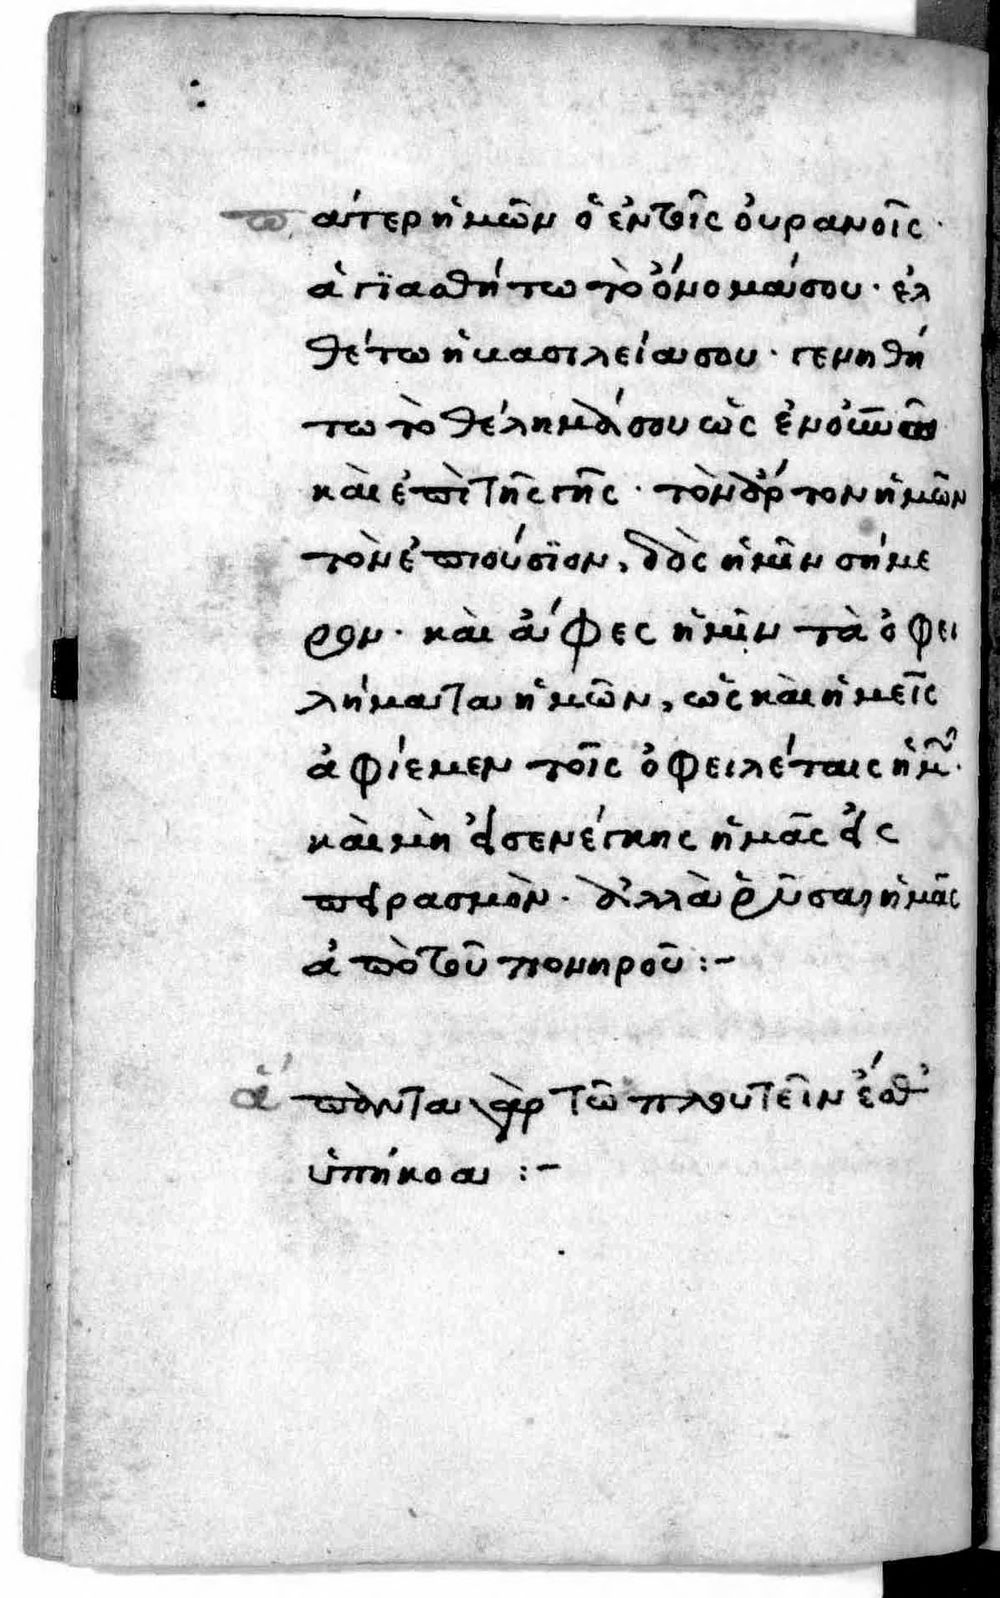 πάτερ ἡμῶν ὁ ἐν τοῖς οὐρανοῖς ·
ἁγϊασθήτω τὸ ὄνομά σου · ἐλ
θέτω ἡ βασιλεία σου · γενηθή
τω τὸ θέλημά σου ὡς ἐν οὐνῶ
καὶ ἐπὶ τῆς γῆς · τὸν ἄρτον ἡμῶν
τὸν ἐπιούσϊον, δὸς ἡμῖν σήμε
ρον · καὶ ἄφες ἡμῖν τὰ ὀφει
λήματα ἡμῶν, ὡς καὶ ἡμεῖς
ἀφίεμεν τοῖς ὀφειλέταις ἡμῶν ·
καὶ μὴ εἰσενέγκης ἡμᾶς εἰς
πειρασμὸν · ἀλλὰ ῥῦσαι ἡμᾶς
ἀπὸ τοῦ πονηροῦ :–
ἅπαντα γὰρ τῶ πλουτεῖν ἐσθ'
ὑπήκοα :–